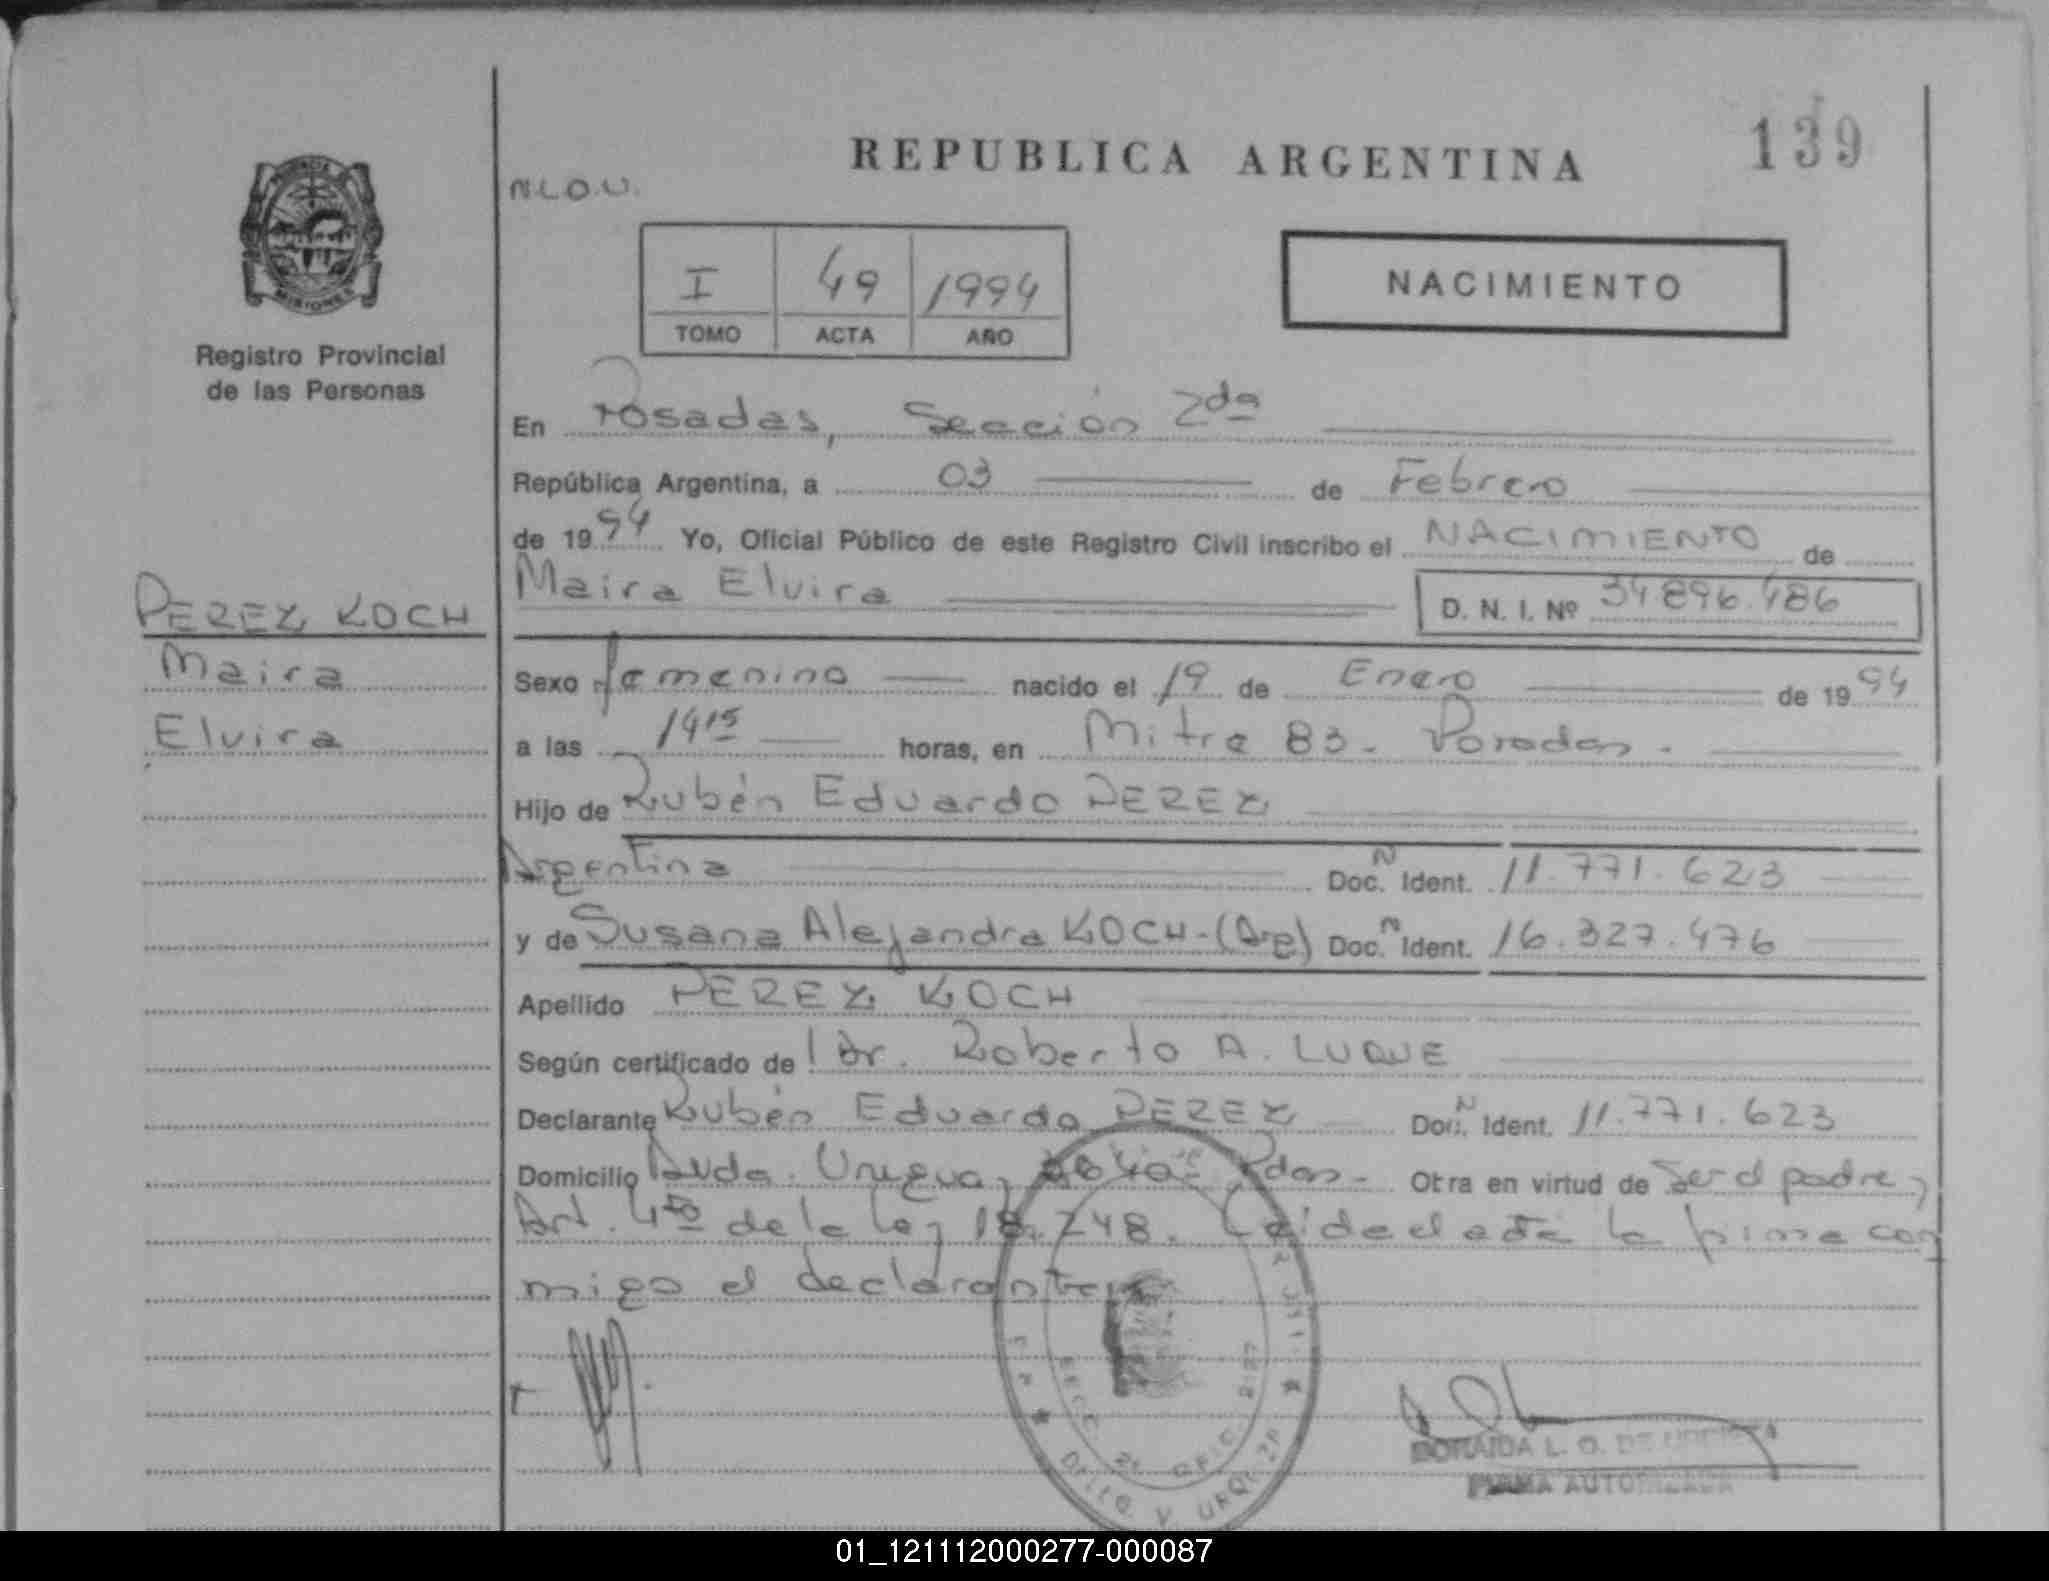 REPUBLICA ARGENTINA
139
N.L.O.U.
PROVINCIA
MISIONES
Registro Provincial
de las Personas
I 49 1994
TOMO ACTA AÑO
NACIMIENTO
En Posadas, Sección 2da
República Argentina, a 03 de Febrero
de 1994 Yo, Oficial Público de este Registro Civil inscribo el NACIMIENTO de
Maira Elvira D. N. I. Nº 34.896.486
PEREZ KOCH
Maira
Elvira
Sexo femenino nacido el 19 de Enero de 1994
a las 1415 horas, en Mitre 83. Posadas.
Hijo de Rubén Eduardo PEREZ
Argentina Doc. N Ident. 11.771.623
y de Susana Alejandra KOCH-(Arg) Doc. N Ident. 16.327.476
Apellido PEREZ KOCH
Según certificado de Dr. Roberto A. LUQUE
Declarante Rubén Eduardo PEREZ Doc. N Ident. 11.771.623
Domicilio Avda. Uruguay Pdas- Otra en virtud de Ser el padre y
Art. 4to de la Ley 18.248. Leida el acta la firma con
migo el declarante
SECC. 2a OFIC.
DPTO. V. URQUIZA
L. O. DE
FIRMA AUTORIZADA
01_121112000277-000087